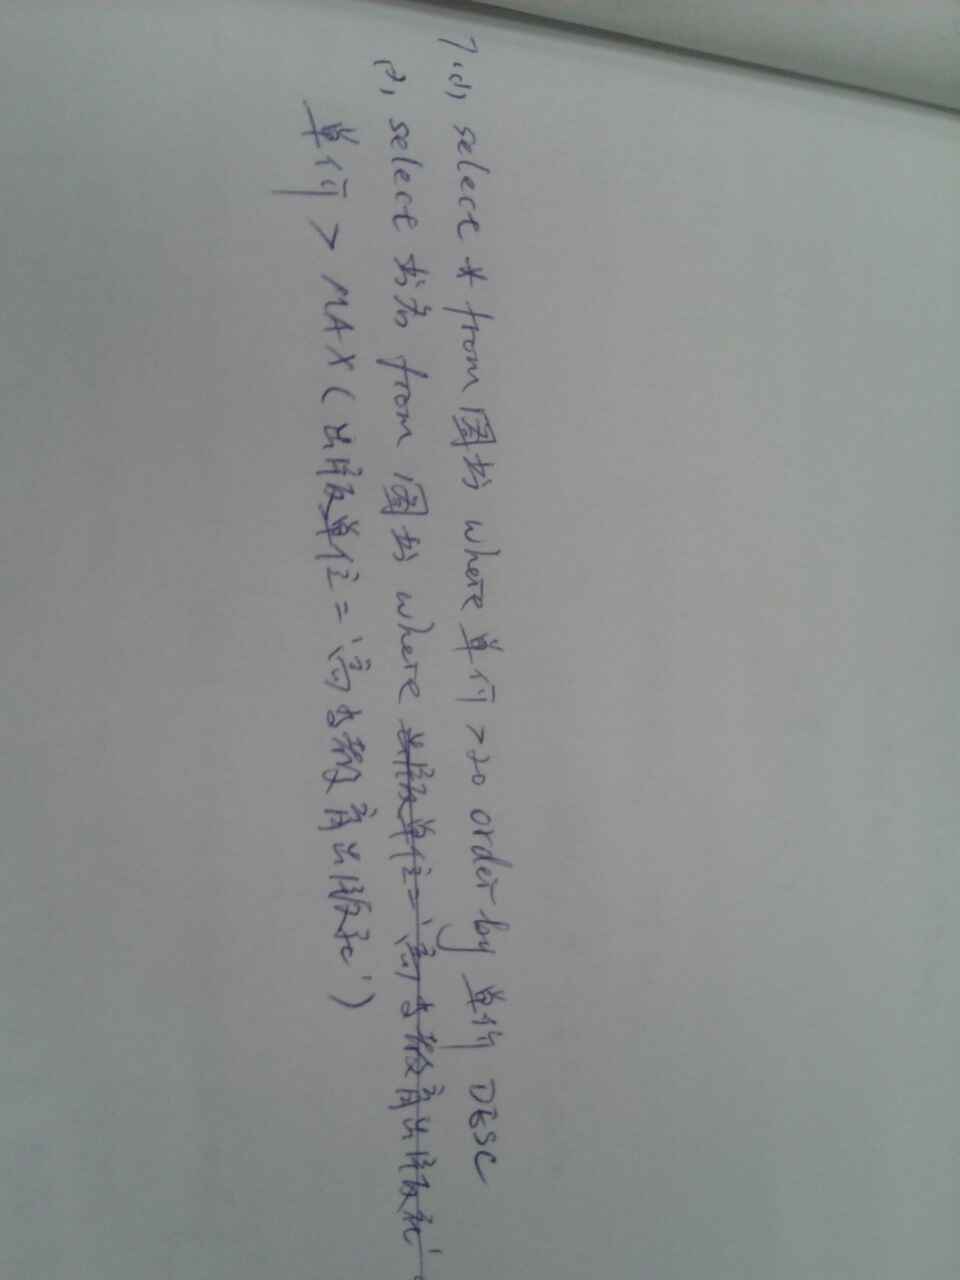 7.(1), select * from 图书 where 单价 >20 order by 单价 DESC
(2), select 书名 from 图书 where 出版单位='高等教育出版社'
单价 > MAX(出版单位='高等教育出版社')